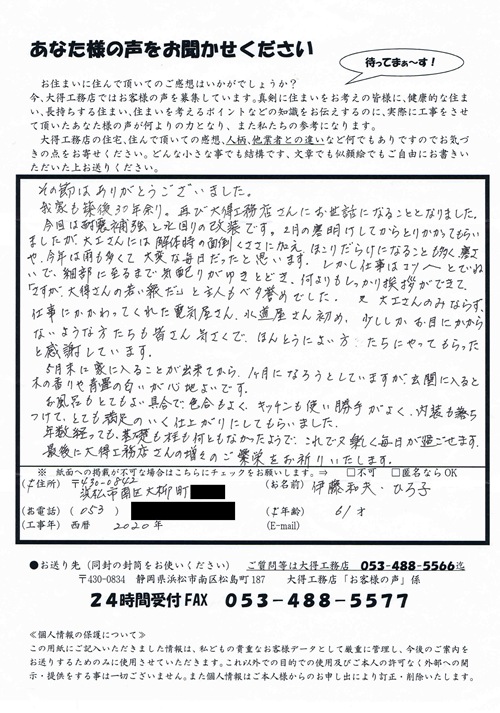 あなた様の声をお聞かせください
待ってまぁ～す！
お住まいに住んで頂いてのご感想はいかがでしょうか？
今、大得工務店ではお客様の声を募集しています。真剣に住まいをお考えの皆様に、健康的な住ま
い、長持ちする住まい、住まいを考えるポイントなどの知識をお伝えするのに、実際に工事をさせ
て頂いたあなた様の声が何よりの力となり、また私たちの参考になります。
大得工務店の住宅、住んで頂いての感想、人柄、他業者との違いなど何でもありますのでお気づ
きの点をお寄せください。どんな小さな事でも結構です、文章でも似顔絵でもご自由にお書きい
ただいた上お送りください。
その節はありがとうございました。
我家も築後30年余り。再び大得工務店さんにお世話になることとなりました。
今回は耐震補強と水回りの改装です。2月の寒明けしてからとりかかってもらい
ましたが、大工さんには解体時の面倒くささに加え、ほこりだらけになることも多く、寒さ
や、今年は雨も多くて大変な毎日だったと思います。しかし仕事はコツコツとていねい
で、細部に至るまで気配りがゆきとどき、何よりもしっかり挨拶ができて、
「さすが、大得さんの若い衆だ」と主人もベタ誉めでした。又大工さんのみならず、
仕事にかかわってくれた電気屋さん、水道屋さん初め、少ししかお目にかから
ないような方たちも皆さん気さくで、ほんとうによい方たちにやってもらった
と感謝しています。
5月末に家に入ることが出来てから、1ヶ月になろうとしていますが玄関に入ると
木の香りや青畳の匂いが心地よいです。
お風呂もとてもよい具合で、色合もよく、キッチンも使い勝手がよく、内装も落ち
つけて、とても満足のいく仕上がりにしてもらいました。
年数経っても、基礎も柱も何ともなかったようで、これで又楽しく毎日が過ごせます。
最後に大得工務店さんの増々のご繁栄をお祈りいたします。
※ 紙面への掲載が不可な場合はこちらにチェックをお願いします。⇒ □不可 □匿名ならOK
(ご住所) 〒430-0842 (お名前) 伊藤和夫・ひろ子
浜松市南区大柳町
(お電話) (053) (ご年齢) 61才
(工事年) 西暦 2020年 (E-mail)
●お送り先（同封の封筒をお使いください） ご質問等は大得工務店 053-488-5566迄
〒430-0834 静岡県浜松市南区松島町187 大得工務店「お客様の声」係
24時間受付FAX 053-488-5577
≪個人情報の保護について≫
この用紙にご記入いただきました情報は、私どもの貴重なお客様データとして厳重に管理し、今後のご案内を
お送りするためのみに使用させていただきます。これ以外での目的での使用及びご本人の許可なく外部への開
示・提供をする事は一切ございません。また個人情報はご本人様からのお申し出により訂正・削除いたします。